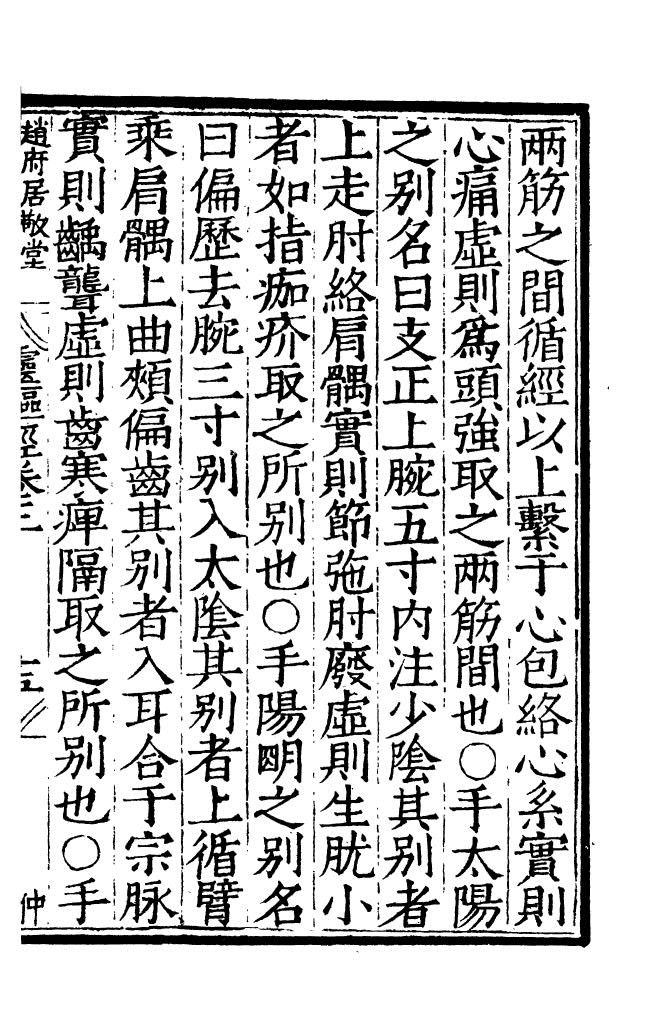 兩筋之間循經以上繫于心包絡心系實則
心痛虛則爲頭強取之兩筋間也〇手太陽
之别名曰支正上腕五寸内注少隂其别者
上走肘絡肩髃實則節弛肘廢虛則生肬小
者如指痂疥取之所别也〇手陽明之别名
曰偏歷去腕三寸别入太隂其别者上循臂
乘肩髃上曲頰偏齒其别者入耳合于宗脉
實則齲聾虛則齒寒痺隔取之所别也〇手
趙府居敬堂 靈樞經卷三 十五 仲